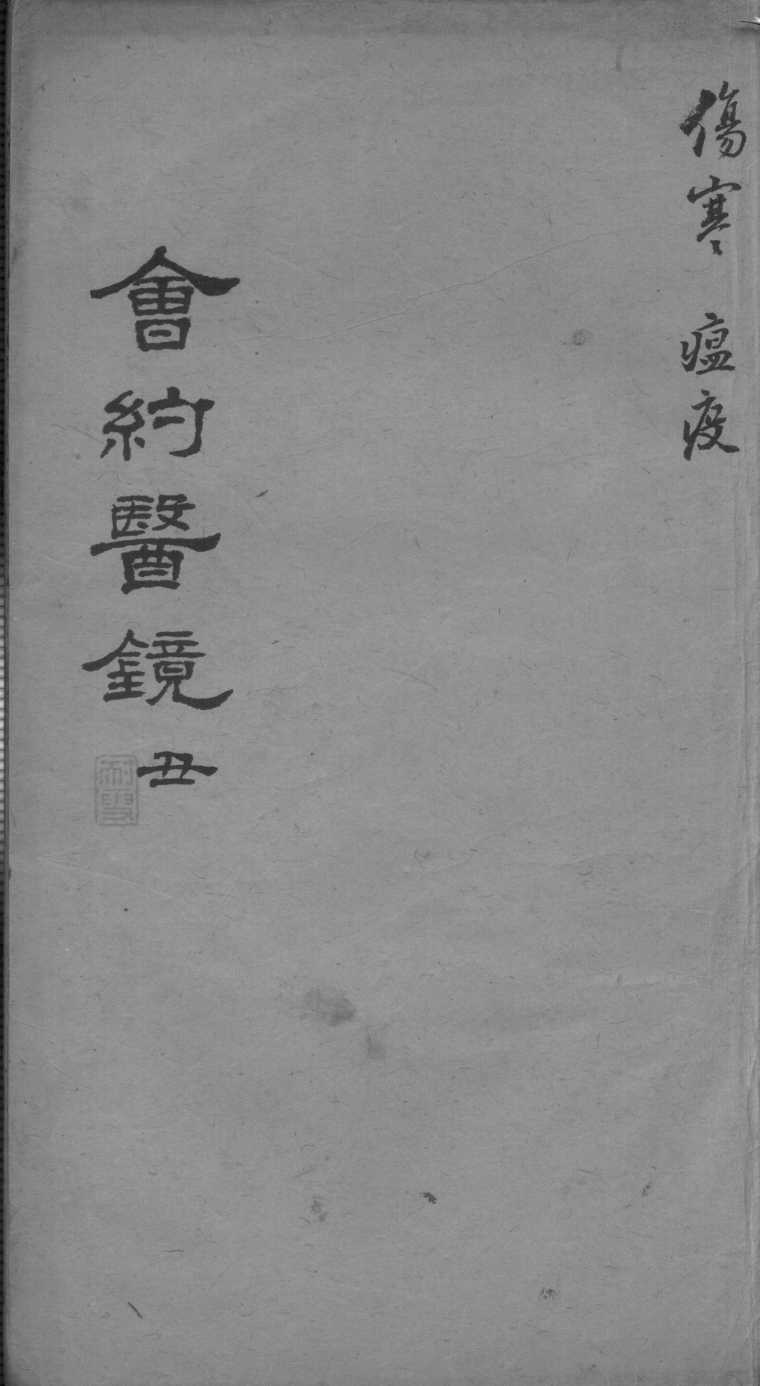 傷寒 瘟疫
會約醫鏡 丑
耐雪